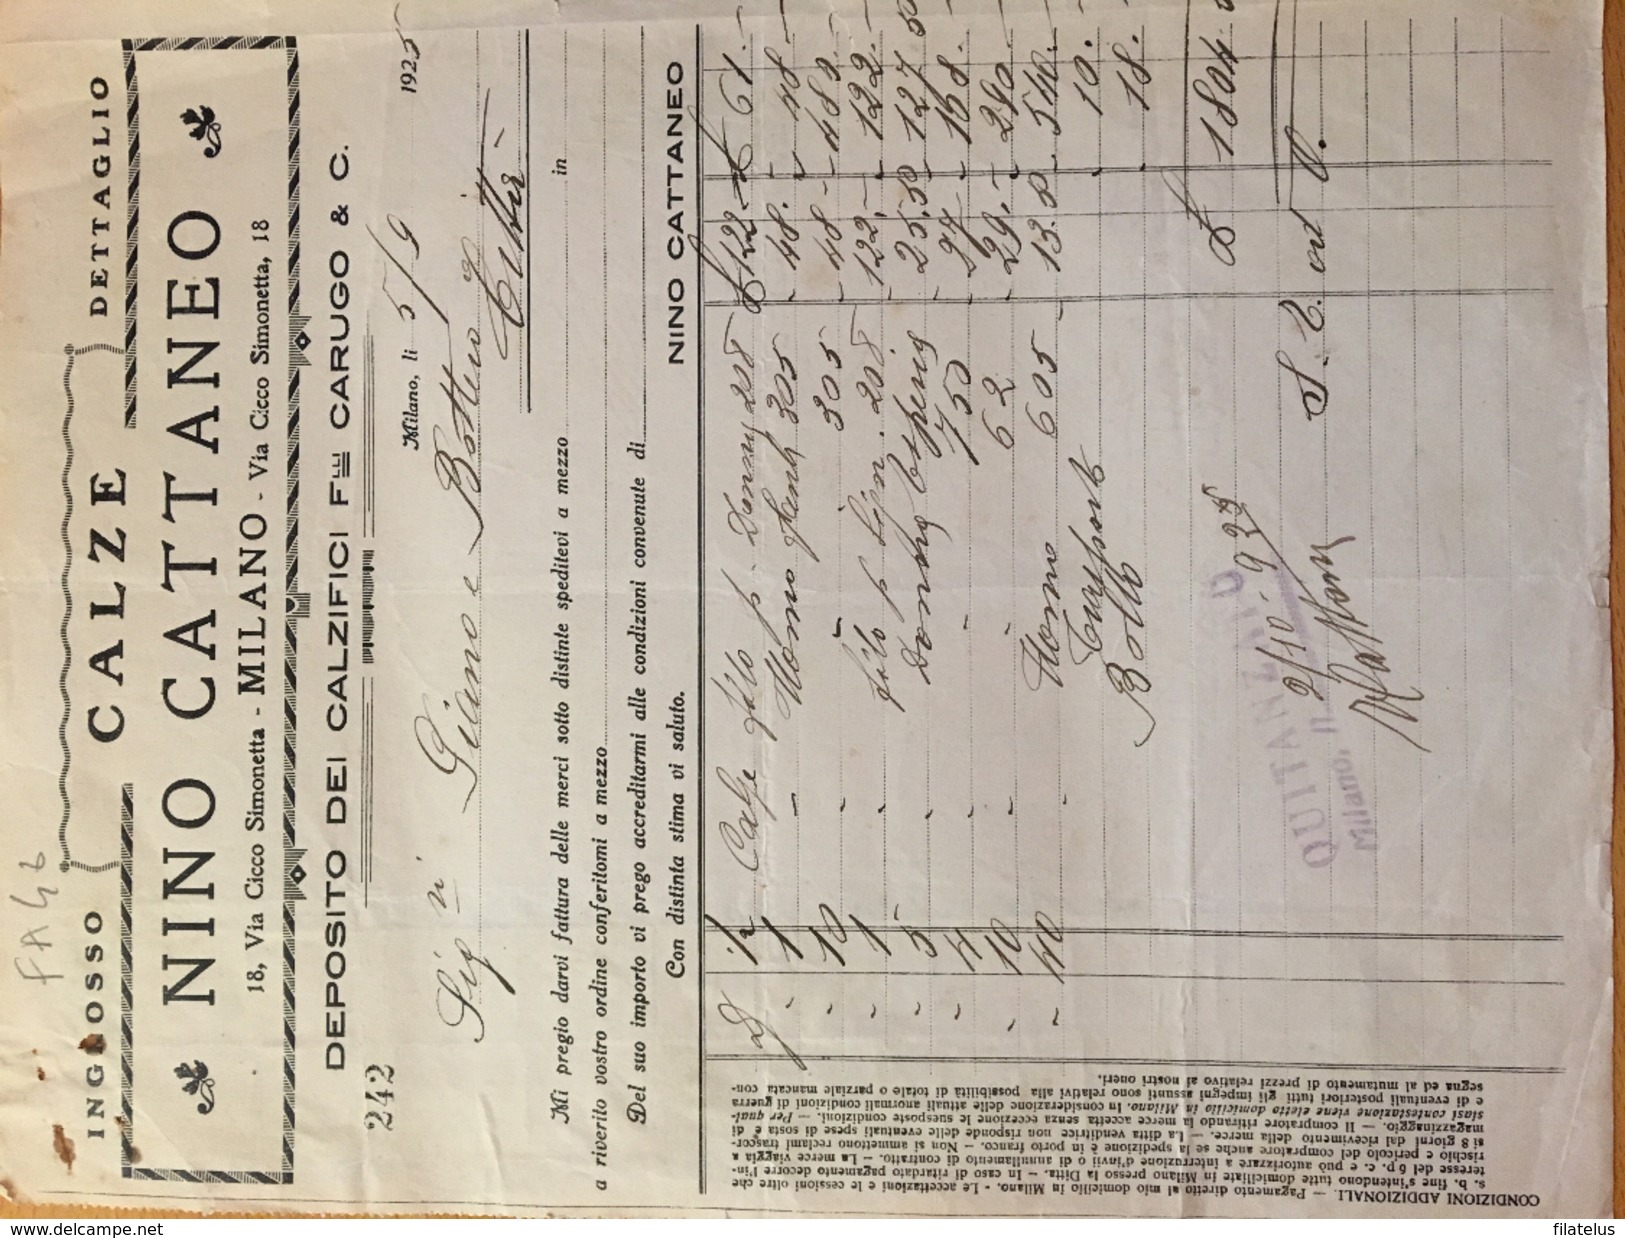 INGROSSO CALZE DETTAGLIO
NINO CATTANEO
18, Via Cicco Simonetta - MILANO - Via Cicco Simonetta, 18
DEPOSITO DEI CALZIFICI F.LLI CARUGO & C.
242
Milano, li 5/9 1925
Sig.ri Silino e Botteri
Città
Mi pregio darvi fattura delle merci sotto distinte speditevi a mezzo in
a riverito vostro ordine conferitomi a mezzo
Del suo importo vi prego accreditarmi alle condizioni convenute di
Con distinta stima vi saluto. NINO CATTANEO
D 1/2 Calze filo p. Donna 208 £ 122 £ 61.-
" 1 " Uomo 305 " 48.- " 48.-
" 10 " " 305 " 48.- " 480.-
" 1 " filo p. Sign. 208 " 122.- " 122.-
" 5 " Donna " 25,50 " 127,50
" 4 " " 750 " 168.-
" 10 " " 62 " 29.- " 290.-
" 40 " Uomo 605 " 13.50 " 540.-
Trasporto " 10.-
Bollo " 18.-
£ 1804.
S. E. od O.
QUITANZATO
Milano, li
2/10-925
CONDIZIONI ADDIZIONALI. — Pagamento diretto al mio domicilio in Milano. - Le accettazioni e le cessioni oltre che
s. b. fine s'intendono tutte domiciliate in Milano presso la Ditta. — In caso di ritardato pagamento decorre l'in-
teresse del 6 p. c. e può autorizzare a interruzione d'invii o di annullamento di contratto. — La merce viaggia a
rischio e pericolo del compratore anche se la spedizione è in porto franco. — Non si ammettono reclami trascor-
si 8 giorni dal ricevimento della merce. — La ditta venditrice non risponde delle eventuali spese di sosta e di
magazzinaggio. — Il compratore ritirando la merce accetta senza eccezione le suesposte condizioni. — Per qual-
siasi contestazione viene eletto domicilio in Milano. In considerazione delle attuali anormali condizioni di guerra
e di eventuali posteriori tutti gli impegni assunti sono relativi alla possibilità di totale o parziale mancata con-
segna ed al mutamento di prezzi relativo ai nostri oneri.
www.delcampe.net
filatelus